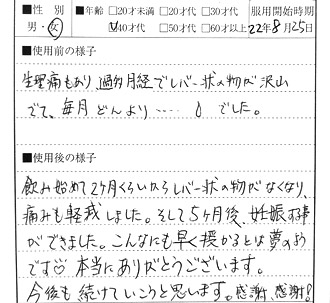 ■性 別 ■年齢 □20才未満 □20才代 □30才代 服用開始時期
男・女 ☑40才代 □50才代 □60才以上 22年8月25日
■使用前の様子
生理痛もあり、過多月経でレバー状の物が沢山
でて、毎月どんより……でした。
■使用後の様子
飲み始めて2ヶ月くらいからレバー状の物がなくなり、
痛みも軽減しました。そして5ヶ月後、妊娠する事
ができました。こんなにも早く授かるとは夢のよう
です♡ 本当にありがとうございます。
今後も続けていこうと思います。感謝、感謝!